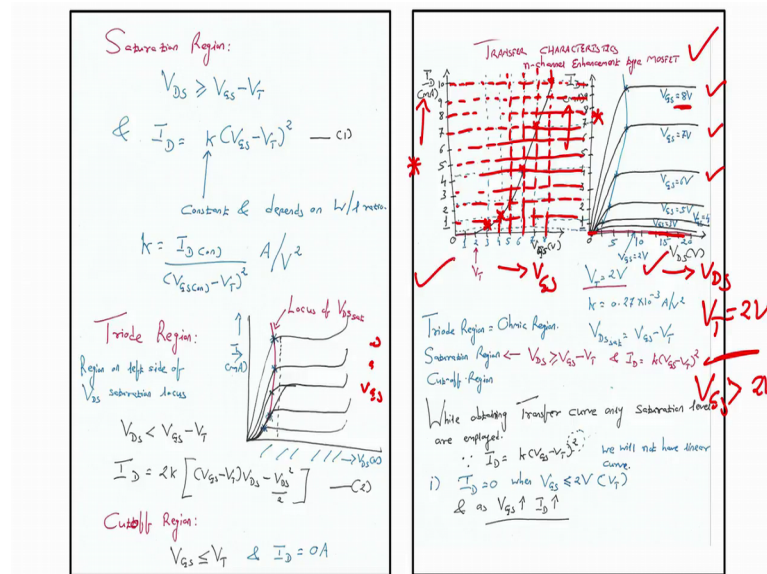 Saturation Region:
V_DS ≥ V_GS - V_T
& I_D = k(V_GS - V_T)² —(1)
Constant & depends on W/l ratio.
k = I_D(on) / (V_GS(on) - V_T)² A/V²
Locus of V_DSsat
Triode Region:
I_D
(mA)
Region on left side of
V_DS saturation locus
V_GS
V_DS < V_GS - V_T
V_DS(V)
I_D = 2k [(V_GS - V_T)V_DS - V_DS²/2] —(2)
Cutoff Region:
V_GS ≤ V_T & I_D = 0A
TRANSFER CHARACTERISTICS
n-channel Enhancement type MOSFET
I_D
(mA)
10
9
8
7
6
5
4
3
2
1
0
1 2 3 4 5 6 7 8
V_GS(V)
V_T
V_GS
I_D
(mA)
V_GS = 8V
V_GS = 7V
V_GS = 6V
V_GS = 5V
V_GS = 2V
0 5 10 15 20
V_DS(V)
V_T = 2V
V_DS
k = 0.27×10⁻³ A/V²
V_T = 2V
Triode Region = Ohmic Region.
V_DSsat = V_GS - V_T
Saturation Region ← V_DS ≥ V_GS - V_T & I_D = k(V_GS - V_T)²
Cut-off Region
V_GS > 2V
While obtaining Transfer curve only Saturation levels
are employed.
∵ I_D = k(V_GS - V_T)²
we will not have linear
curve.
i) I_D = 0 when V_GS ≤ 2V (V_T)
& as V_GS ↑ I_D ↑